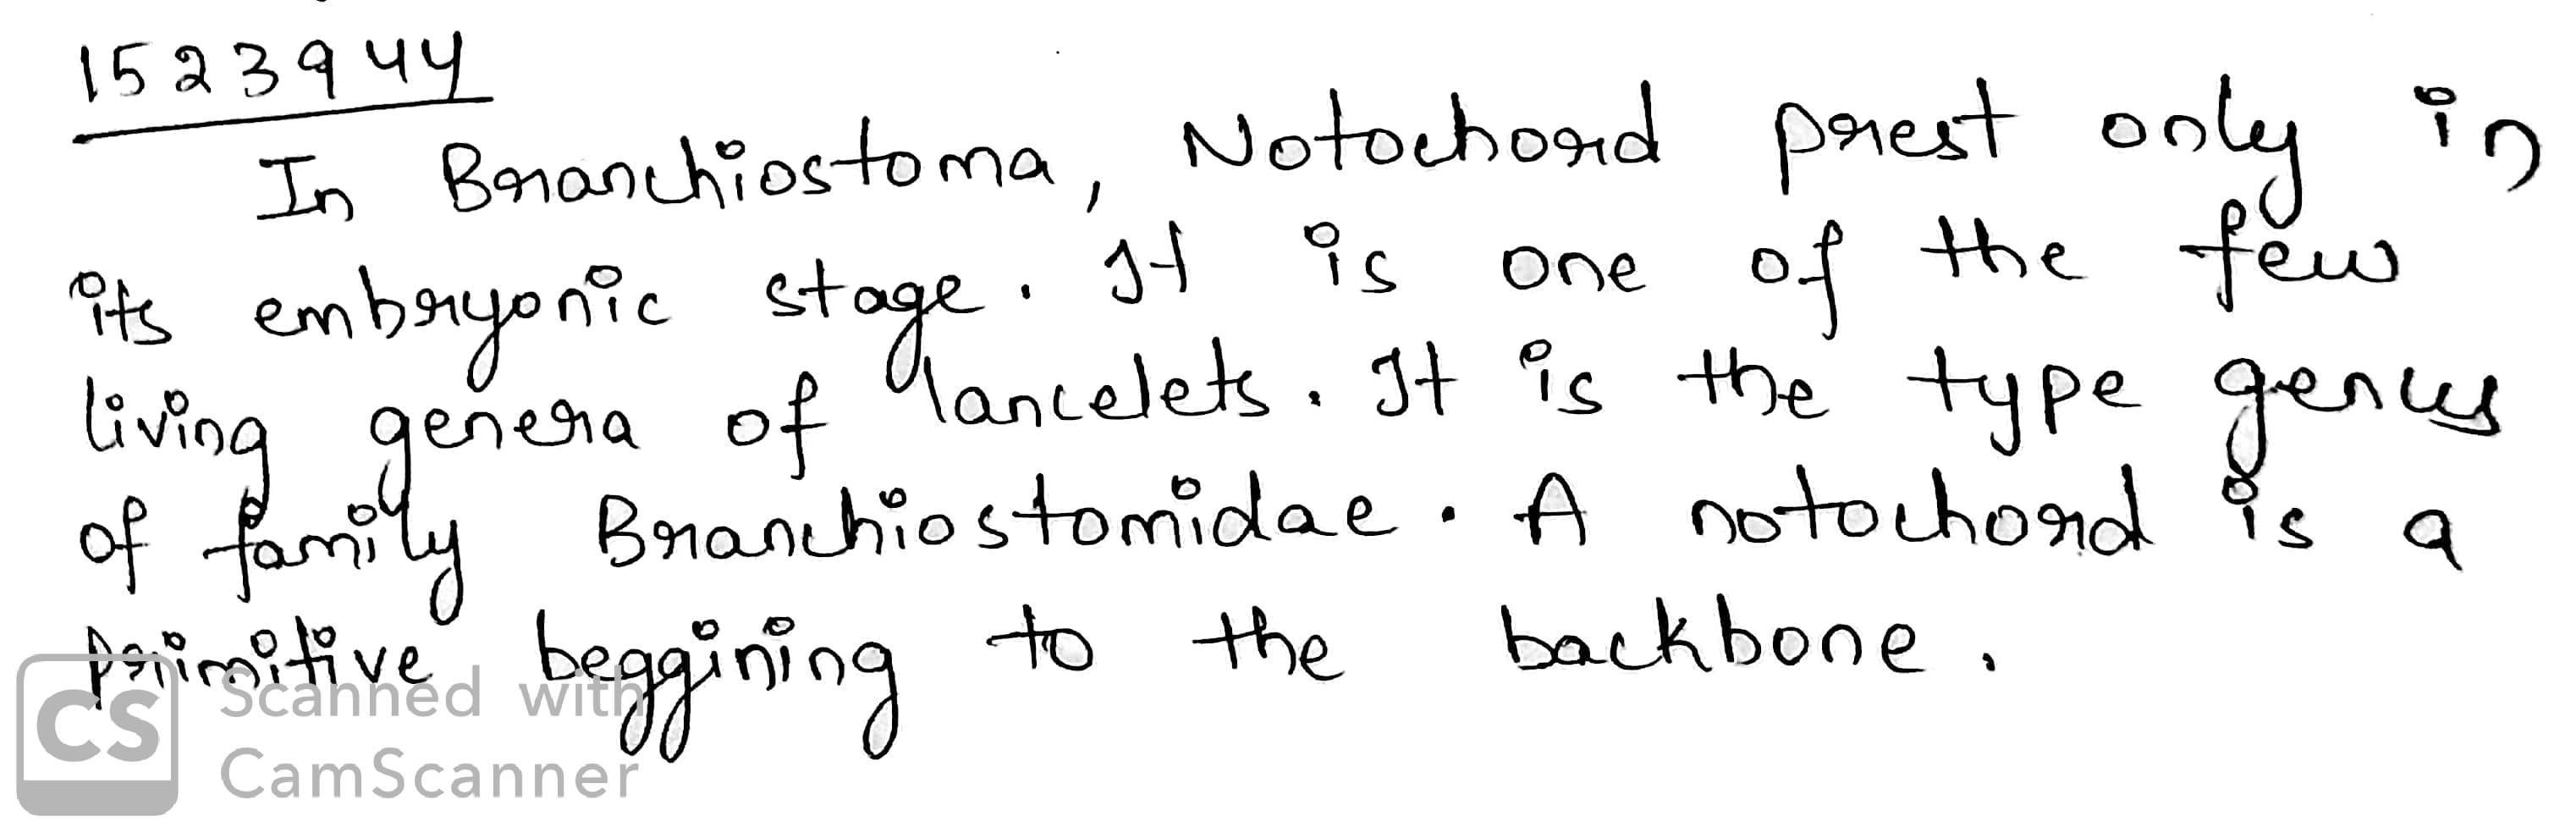 1523944
In Branchiostoma, Notochord prest only in
its embryonic stage. It is one of the few
living genera of lancelets. It is the type genus
of family Branchiostomidae. A notochord is a
primitive beggining to the backbone.
CS Scanned with
CamScanner